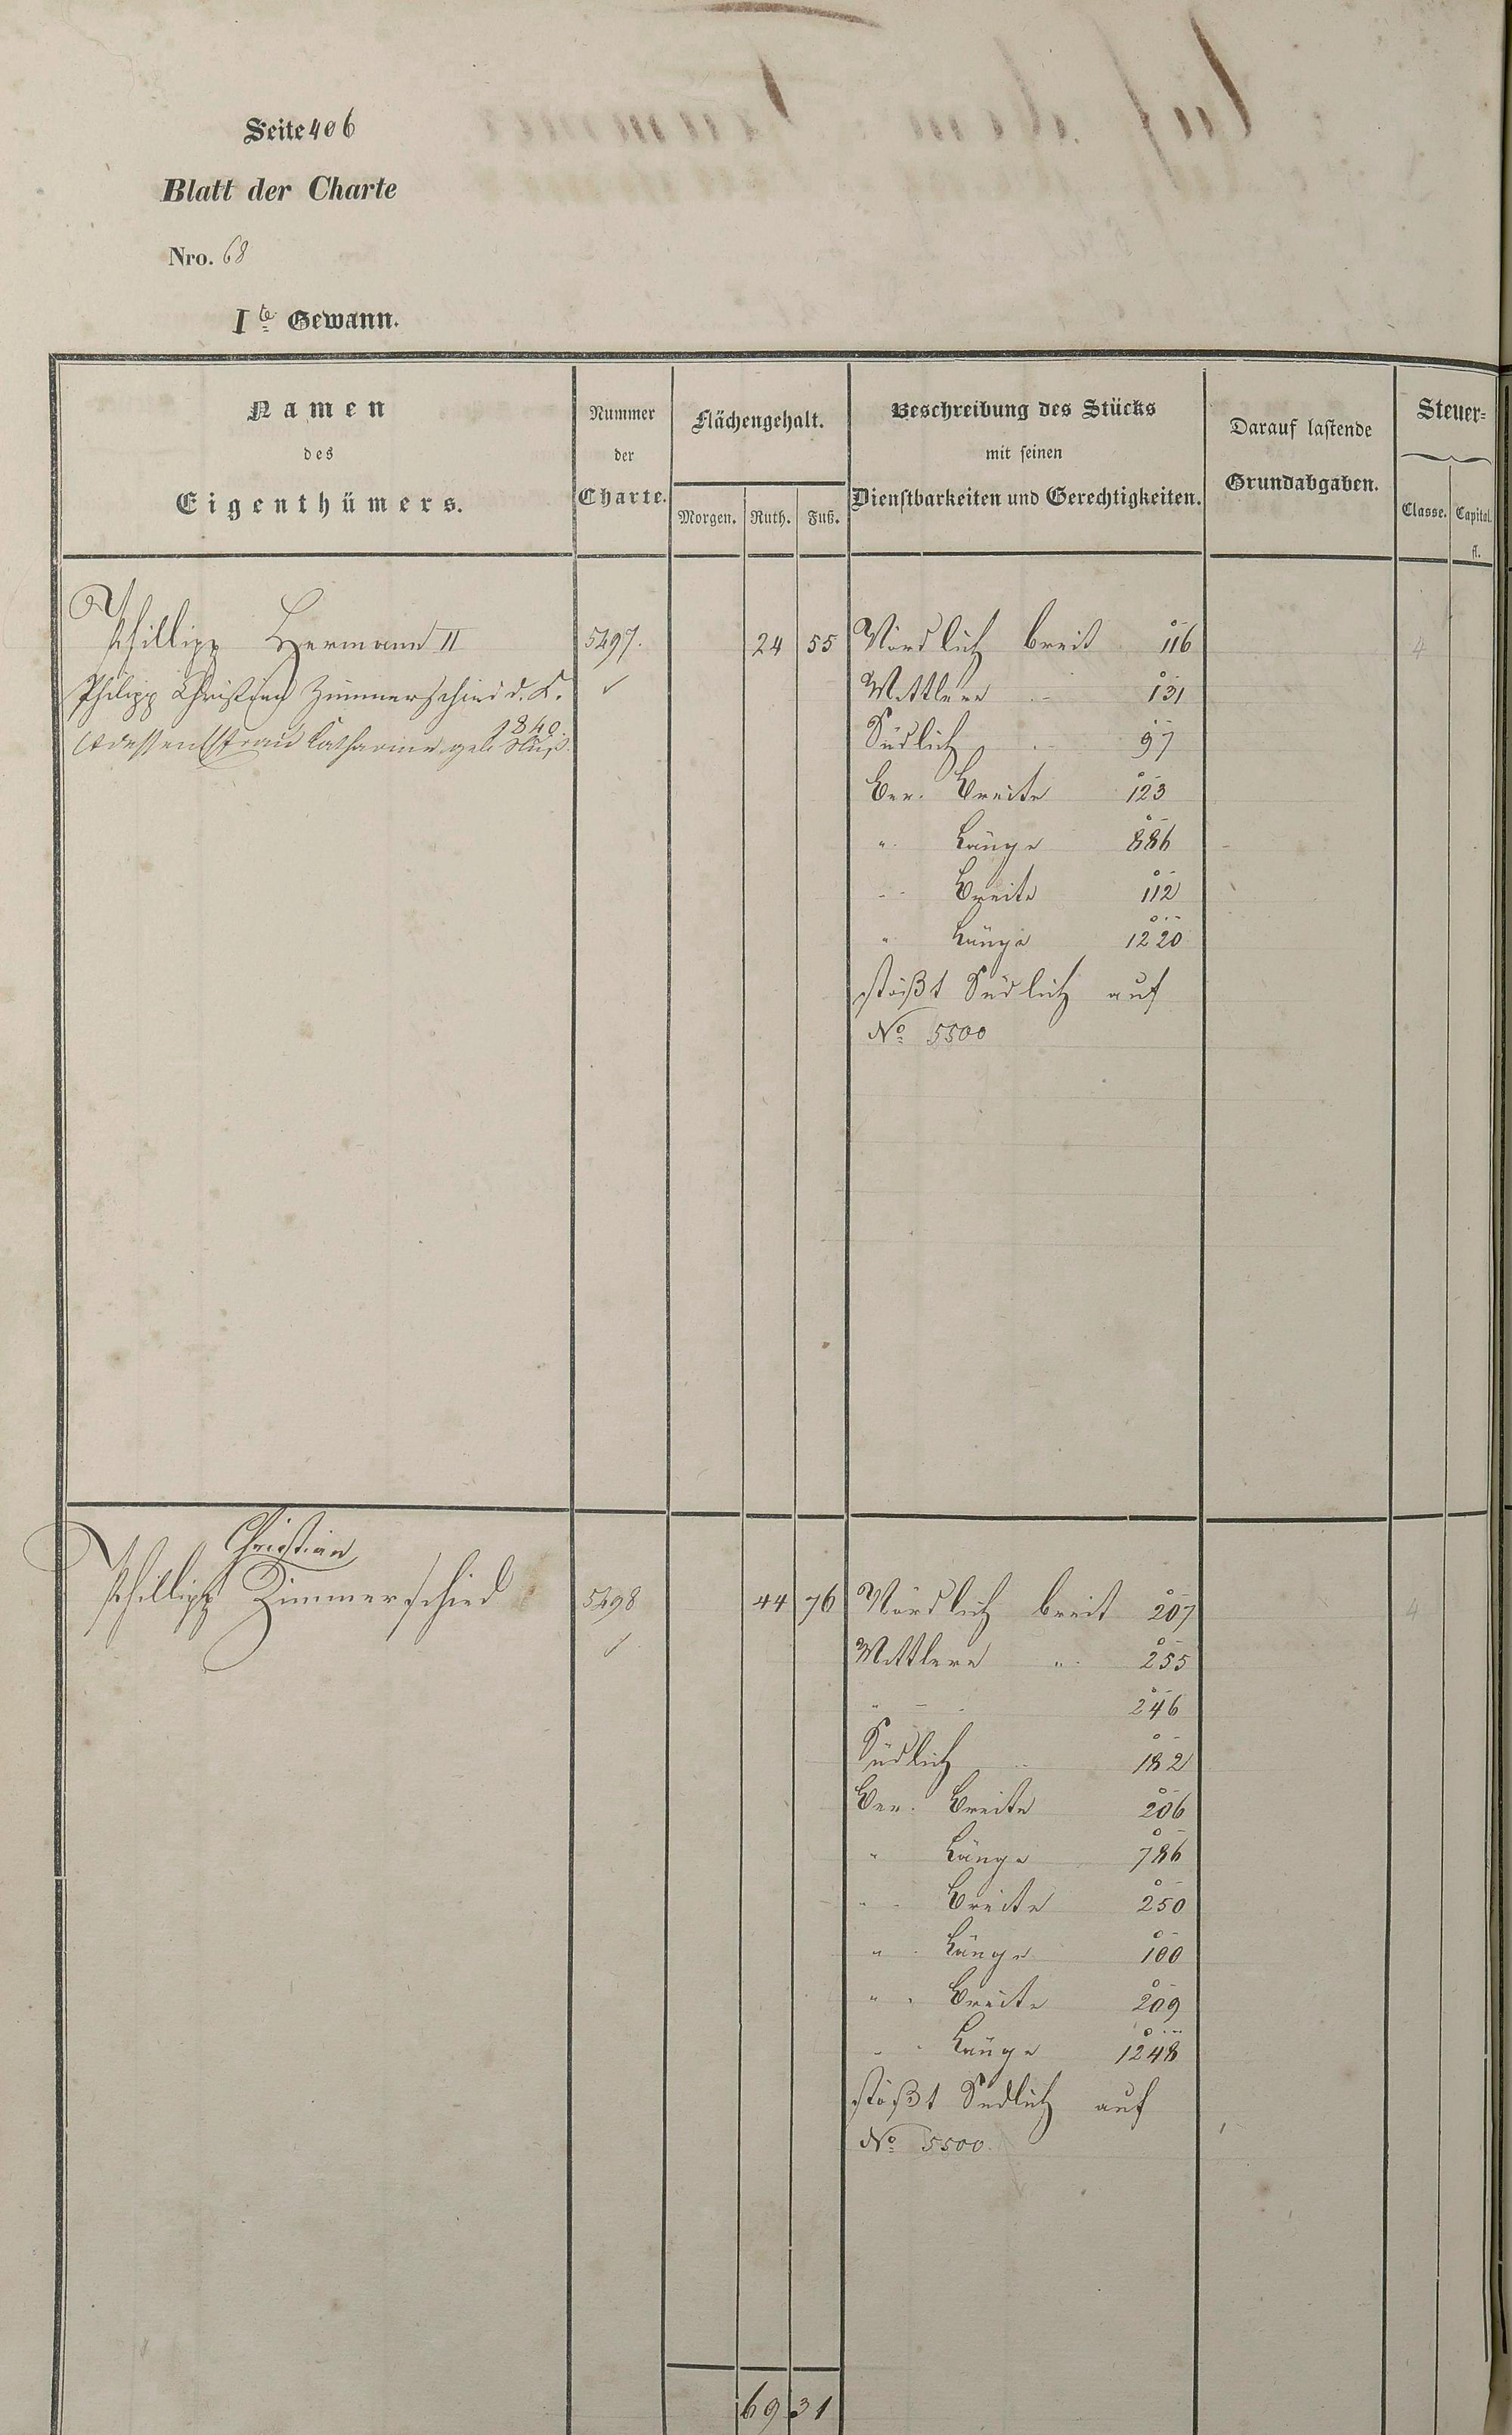 Seite 406
Blatt der Charte
Nro. 68
Ite Gewann.
Namen
des
Eigenthümers.
Nummer
der
Charte.
Flächengehalt.
Morgen. Ruth. Fuß.
Beschreibung des Stücks
mit seinen
Dienstbarkeiten und Gerechtigkeiten.
Darauf lastende
Grundabgaben.
Steuer=
Classe. Capital.
fl.
Phillipp Hermann II 5497. 24 55 Nördlich breit 116 4
Philipp Christian Zimmerschied d. K. ✓ Mittlere 131
1840.
Ehefrau Catharine geb. Südlich 97
Ber. Breite 123
" Länge 886
" Breite 112
" Länge 1220
stößt Südlich auf
No 5500
Christian
Phillipp Zimmerschied 5498 44 76 Nördlich breit 207 4
✓ Mittlere " 255
" 246
Südlich " 182
Ber. Breite 206
" Länge 786
" Breite 250
" Länge 100
" Breite 209
" Länge 1248
stößt Südlich auf
No 5500
69 31